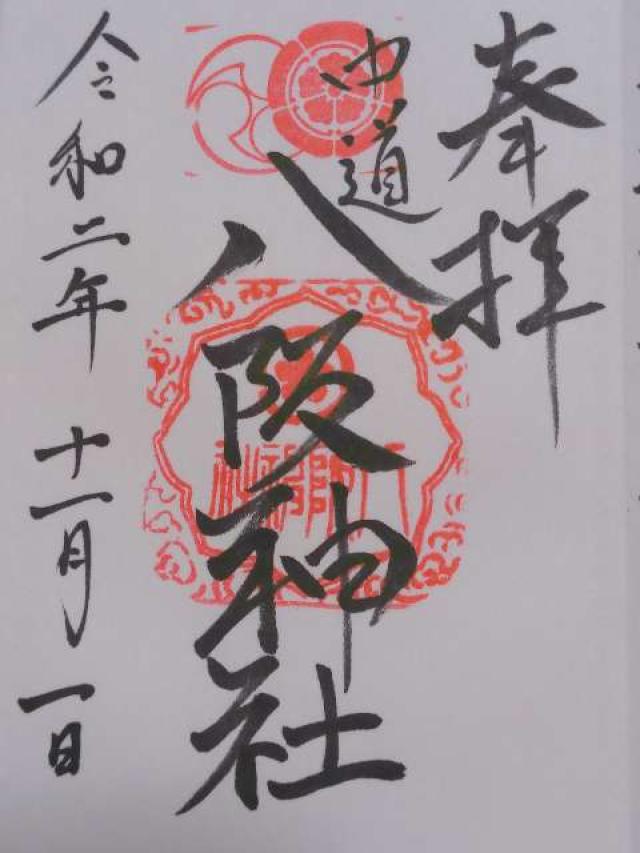 奉拝
中道
八阪神社
令和二年 十一月一日